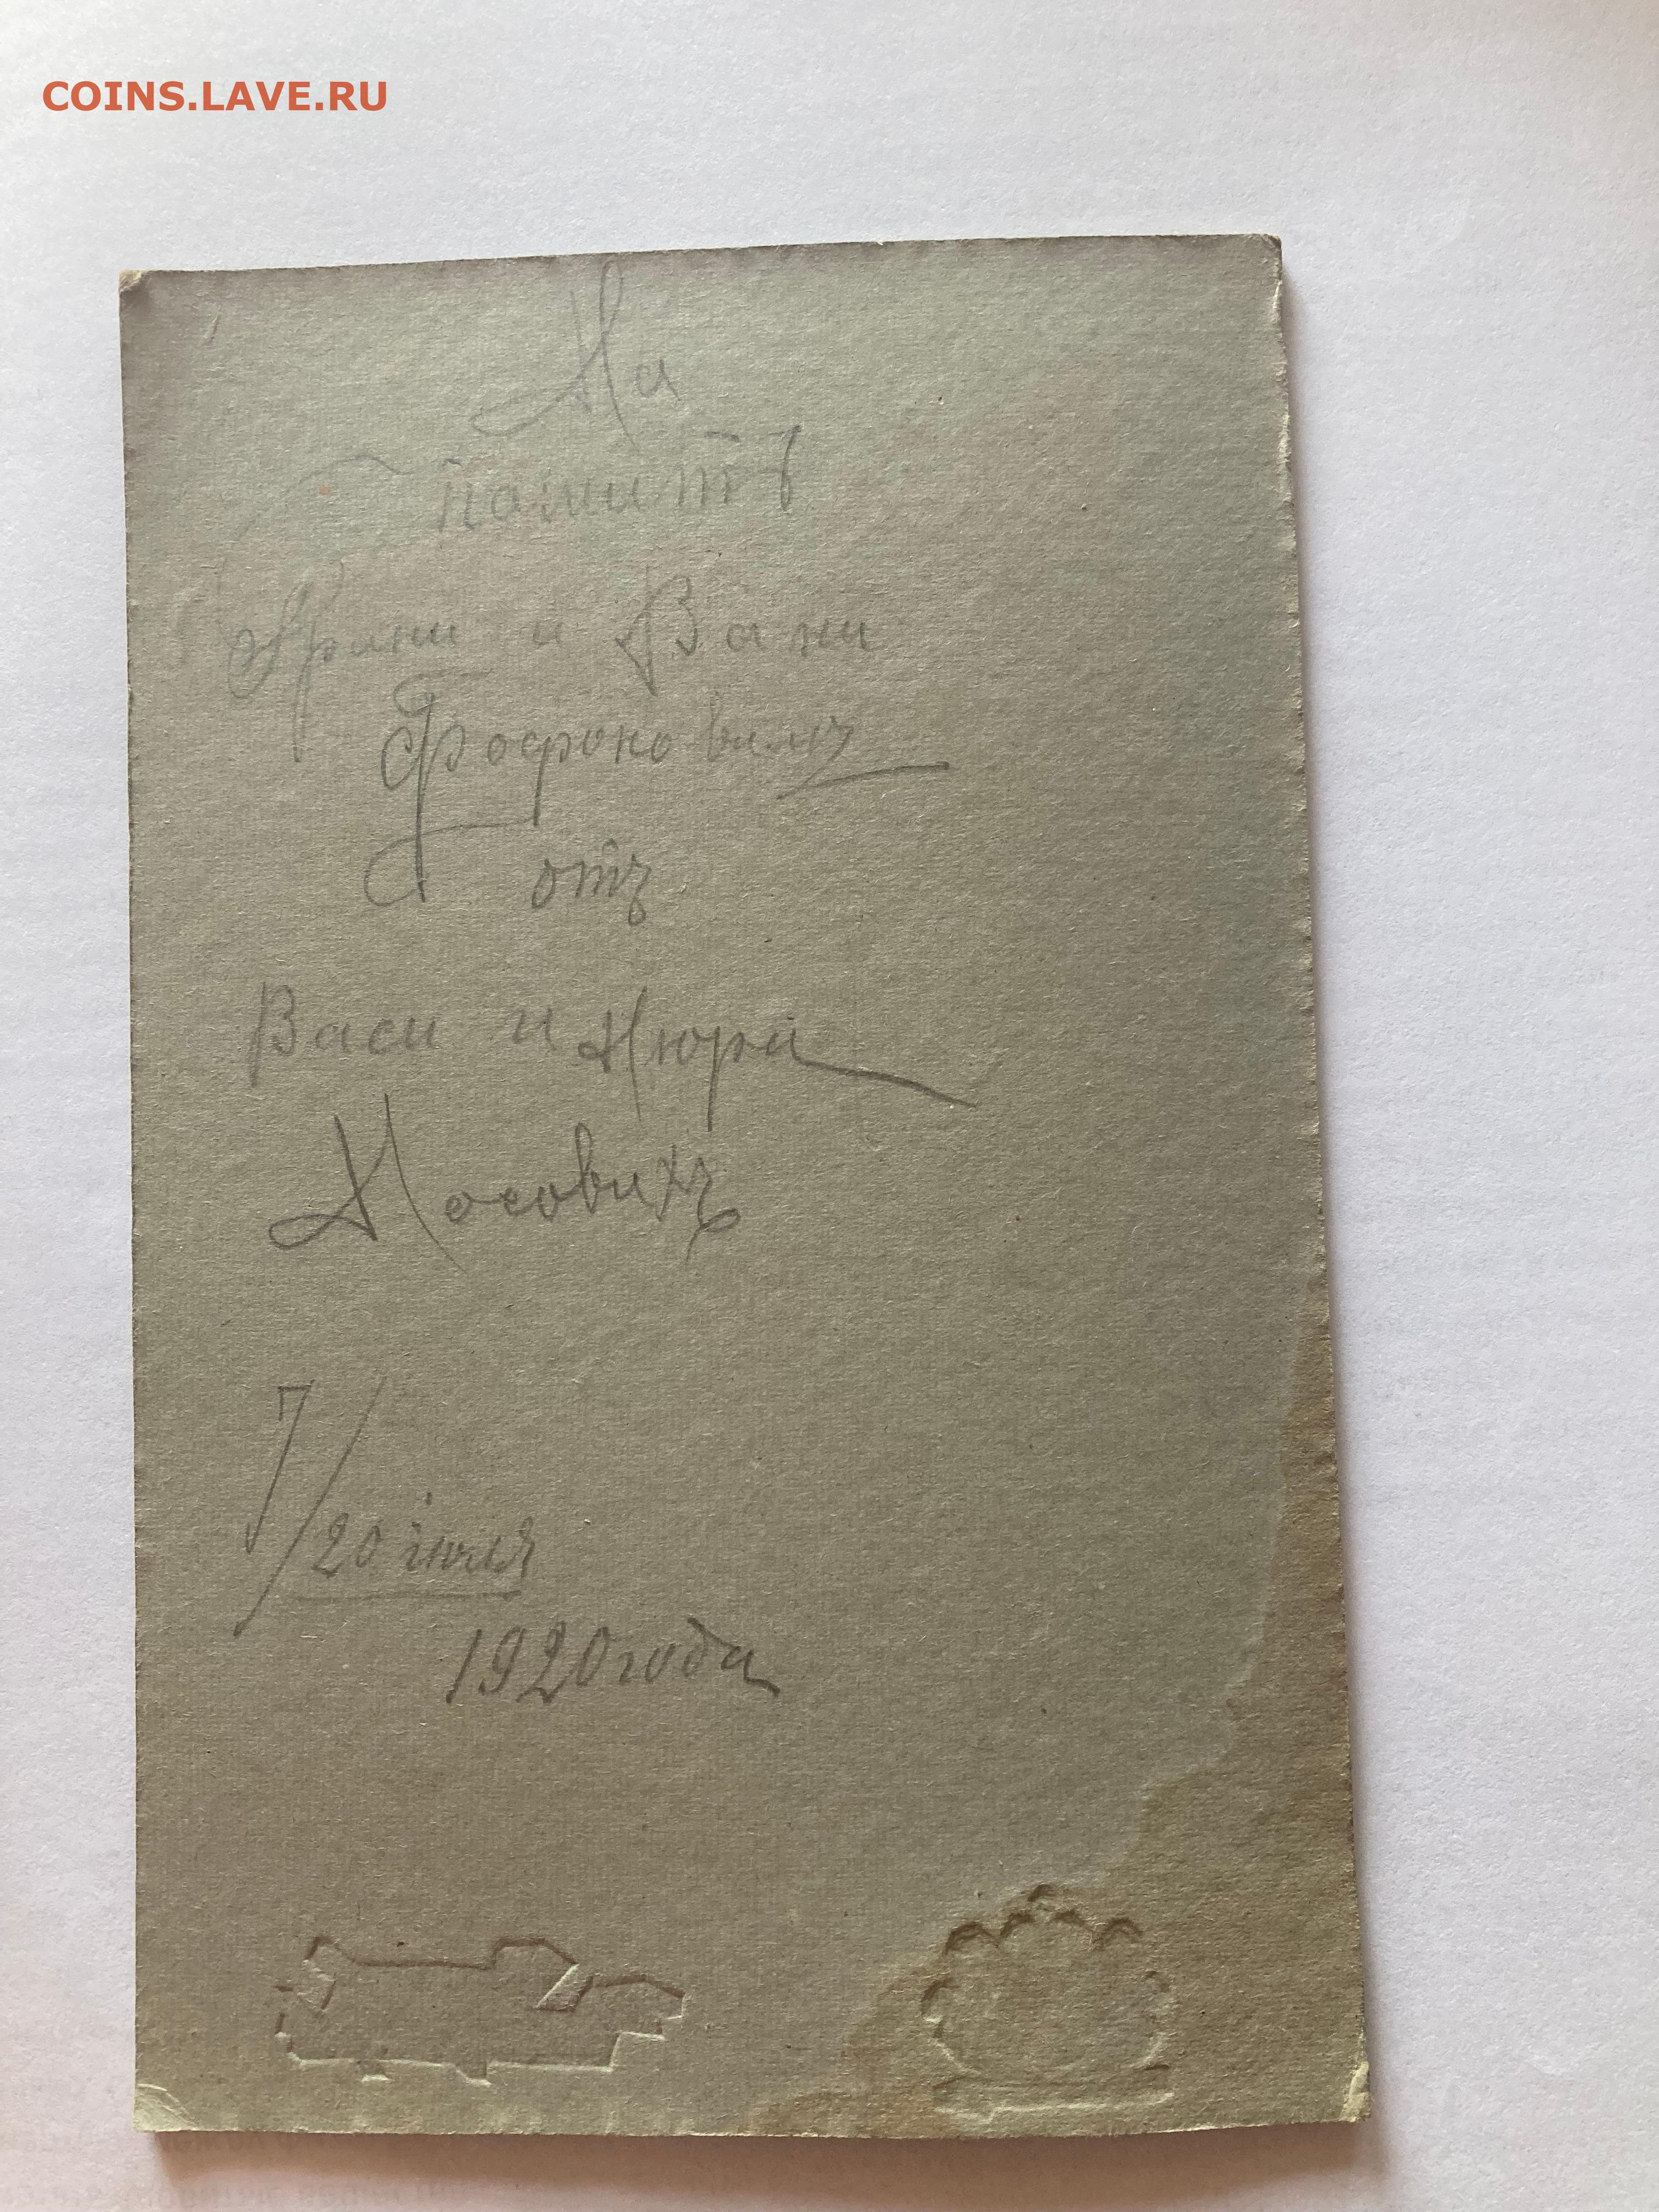 COINS.LAVE.RU
На
память
и Вани
Фофоновымъ
отъ
Васи и Нюра
Носовихъ
7/20 іюля
1920 года